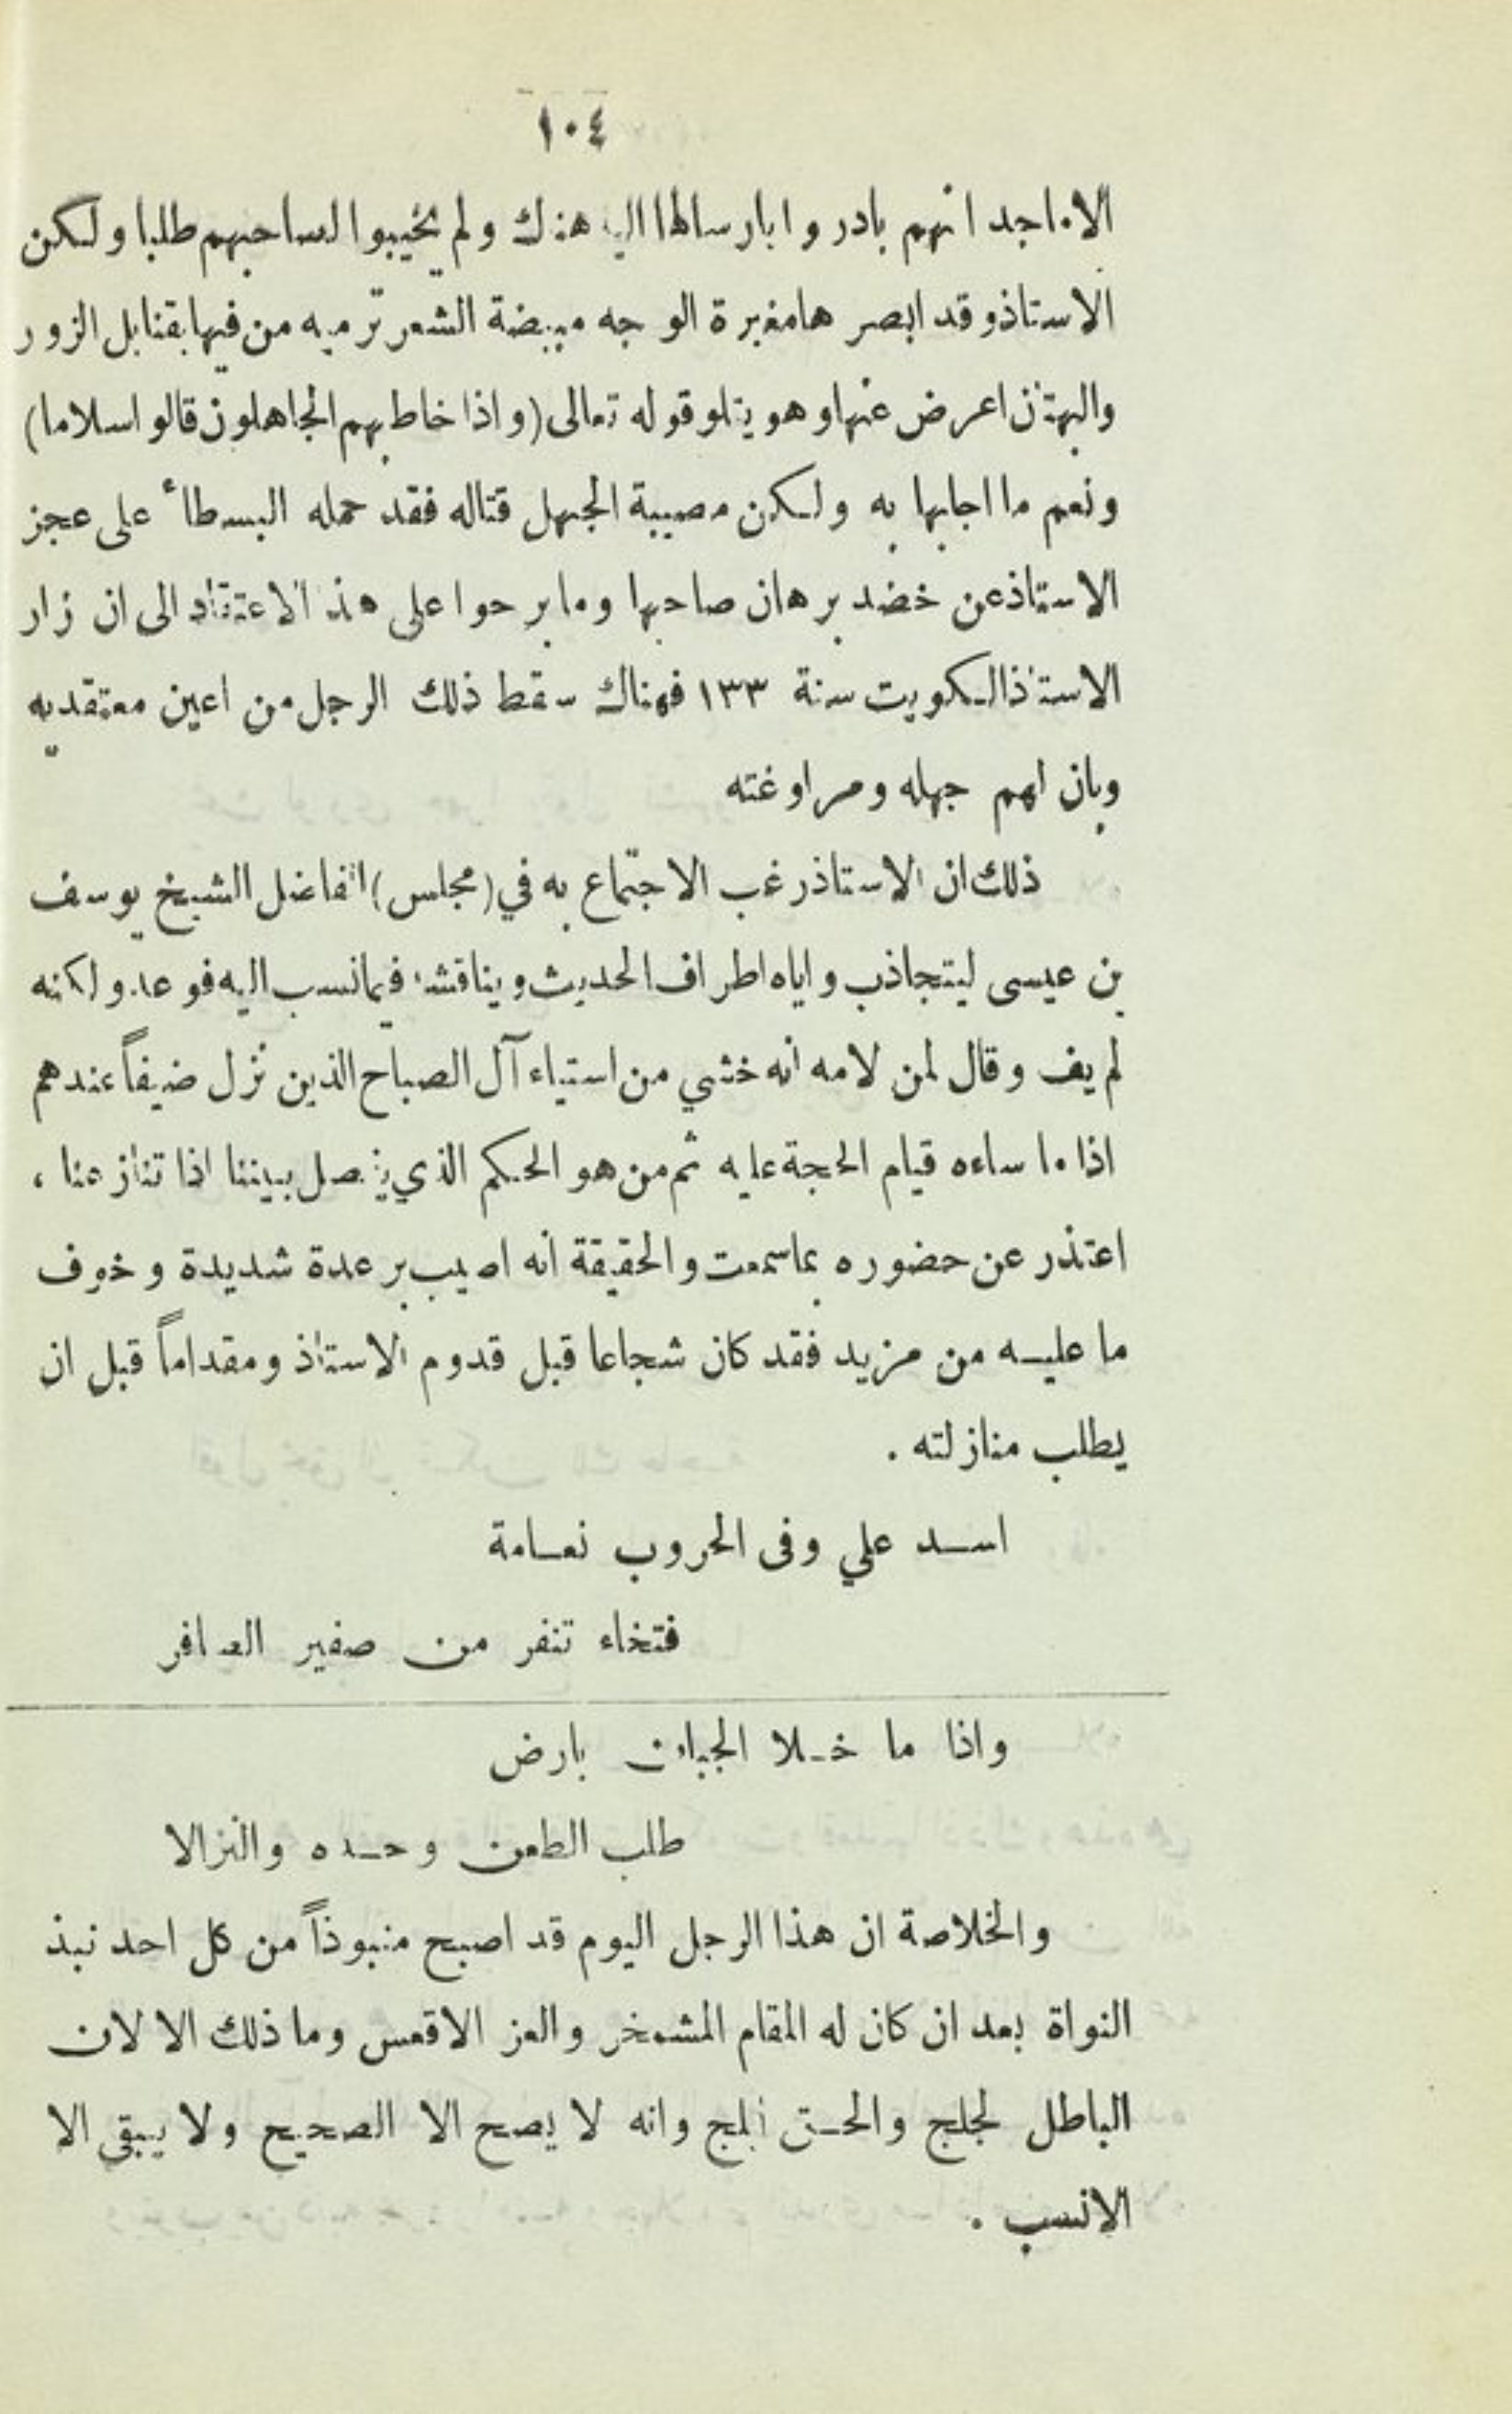 ١٠٤
الاماجد انهم بادروا بارسالها اليه هناك ولم يخيبوا لصاحبهم طلبا ولكن
الاستاذ وقد ابصرها مغبرة الوجه مبيضة الشعر ترميه من فيها بقنابل الزور
والبهتان اعرض عنها وهو يتلو قوله تعالى (واذا خاطبهم الجاهلون قالوا سلاما)
ونعم ما اجابها به ولكن مصيبة الجهل قتاله فقد حمله البسطاء على عجز
الاستاذ عن خضد برهان صاحبها وما برحوا على هذا الاعتقاد الى ان زار
الاستاذ الكويت سنة ١٣٣ فهناك سقط ذلك الرجل من اعين معتقديه
وبان لهم جهله ومراوغته
ذلك ان الاستاذ رغب الاجتماع به في (مجلس) الفاضل الشيخ يوسف
بن عيسى ليتجاذب واياه اطراف الحديث ويناقشه فيما نسب اليه فوعد ولكنه
لم يف وقال لمن لامه انه خشي من استياء آل الصباح الذين نزل ضيفاً عندهم
اذا ما ساءه قيام الحجة عليه ثم من هو الحكم الذي يفصل بيننا اذا تنازعنا ،
اعتذر عن حضوره بما سمعت والحقيقة انه اصيب برعدة شديدة وخوف
ما عليه من مزيد فقد كان شجاعا قبل قدوم الاستاذ ومقداماً قبل ان
يطلب منازلته .
اسد علي وفى الحروب نعامة
فتخاء تنفر من صفير الصافر
واذا ما خلا الجبان بارض
طلب الطعن وحده والنزالا
والخلاصة ان هذا الرجل اليوم قد اصبح منبوذاً من كل احد نبذ
النواة بعد ان كان له المقام المشمخر والعز الاقعس وما ذلك الا لان
الباطل لجلج والحق ابلج وانه لا يصح الا الصحيح ولا يبقى الا
الانسب .